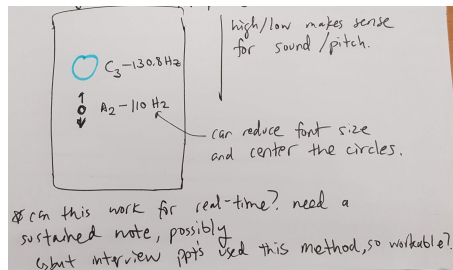 high/low makes sense
for sound/pitch.
C3-130.8Hz
A2-110 Hz
can reduce font size
and center the circles.
* can this work for real-time? need a
sustained note, possibly
but interview ppt's used this method, so workable?